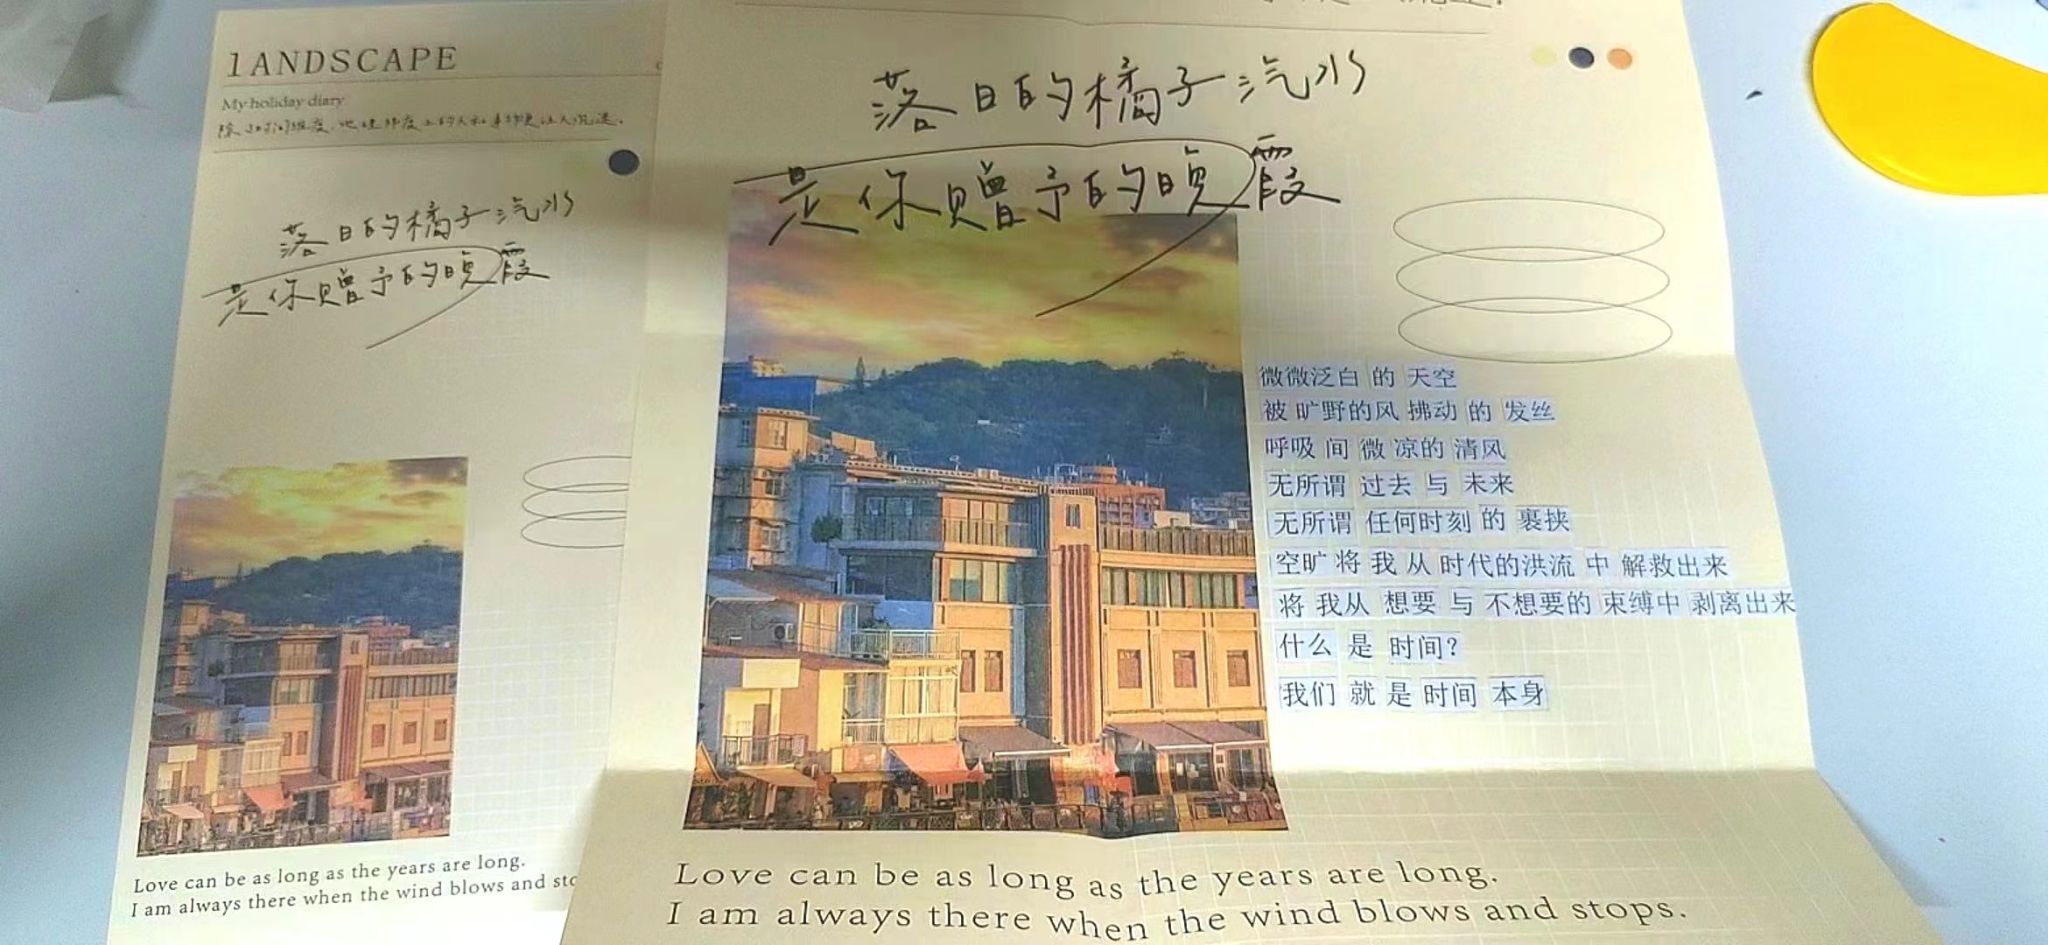 lANDSCAPE
My holiday diary
落日的橘子汽水
是你赠予的晚霞
Love can be as long as the years are long.
I am always there when the wind blows and sto
落日的橘子汽水
是你赠予的晚霞
微微泛白 的 天空
被 旷野的风 拂动 的 发丝
呼吸 间 微 凉的 清风
无所谓 过去 与 未来
无所谓 任何时刻 的 裹挟
空旷 将 我 从 时代的洪流 中 解救出来
将 我从 想要 与 不想要的 束缚中 剥离出来
什么 是 时间？
我们 就 是 时间 本身
Love can be as long as the years are long.
I am always there when the wind blows and stops.